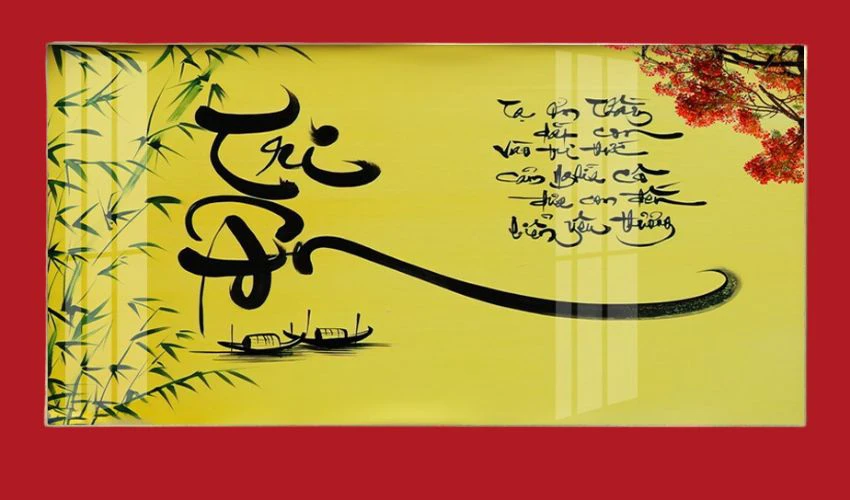 Tri
Ân
Tạ ơn Thầy
dắt con
vào tri thức
Cảm Nghĩa Cô
đưa con đến
biển yêu thương